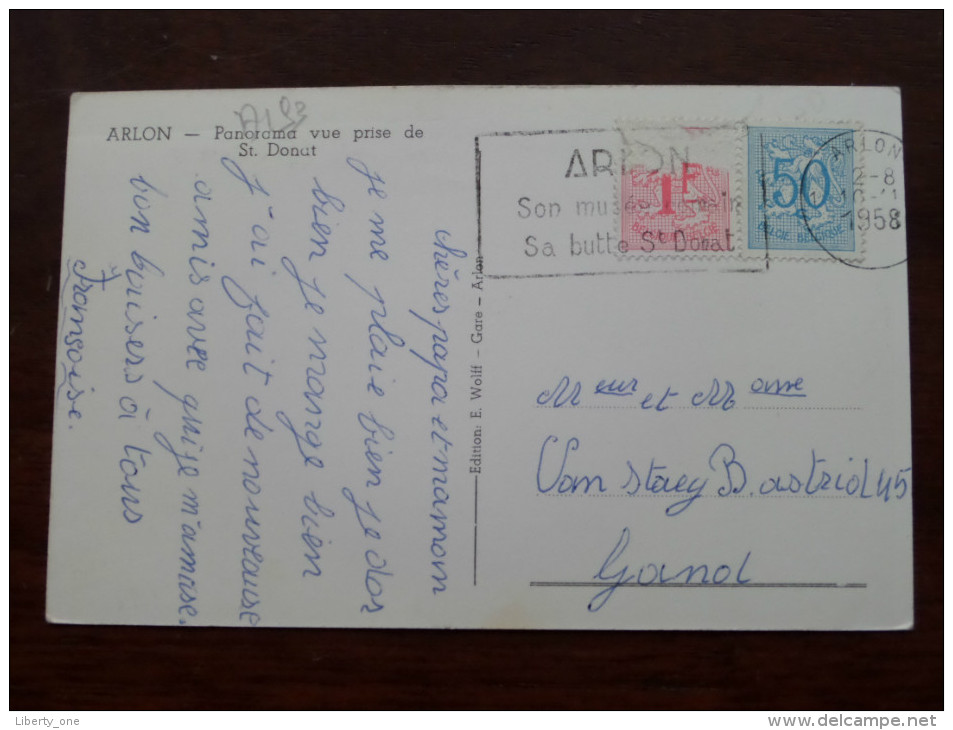 ARLON — Panorama vue prise de
St. Donat
A193
chères papa et mamam
je me plaie bien je dor
bien je mange bien
j'ai fait de nouveause
amis avec qui je m'amuse.
bon baisers à tous
Framsoise.
Edition: E. Wolff — Gare — Arlon
ARLON
Son musée
Sa butte St Donat
1F
BELGIE BELGIQUE
50
BELGIE BELGIQUE
ARLON
1958
Meur et Mme
Van Staey B. astrid 45
Gand
Liberty_one
www.delcampe.net